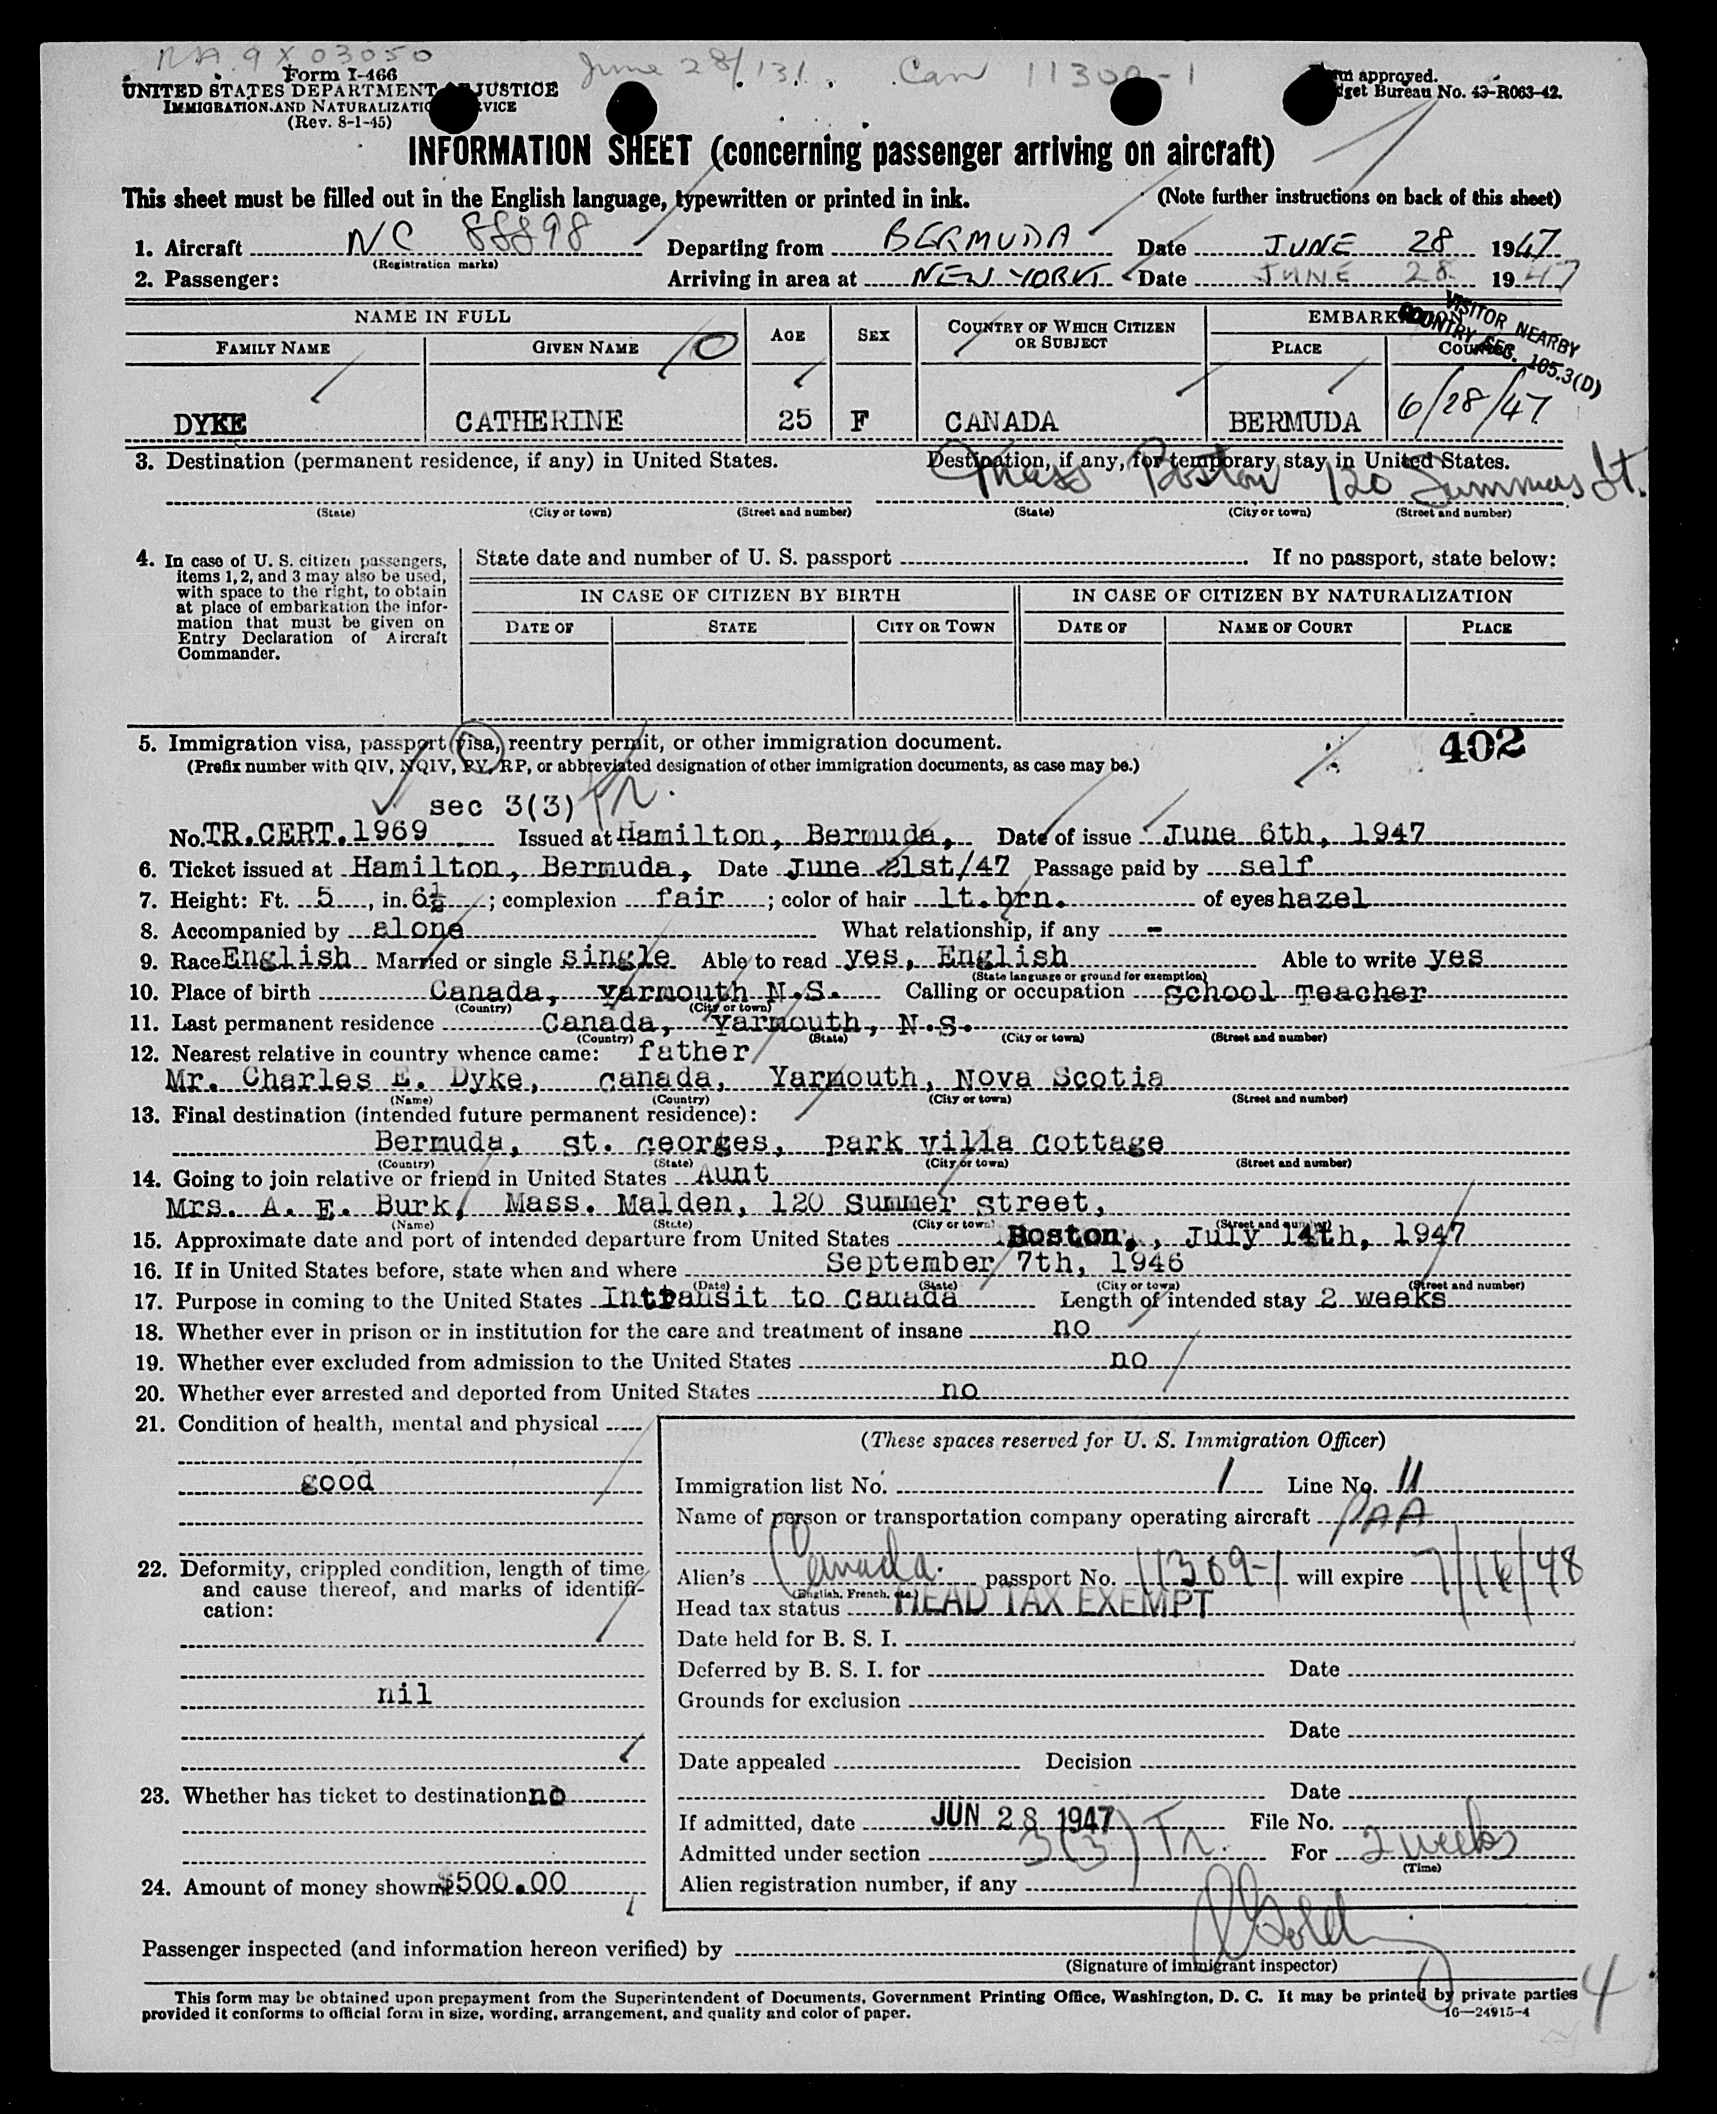 NA 9 X 03050
June 28/131. Can 11309-1
Form I-466
UNITED STATES DEPARTMENT JUSTICE
IMMIGRATION AND NATURALIZATIO RVICE
(Rev. 8-1-45)
m approved.
dget Bureau No. 43-R063-42.
INFORMATION SHEET (concerning passenger arriving on aircraft)
This sheet must be filled out in the English language, typewritten or printed in ink.
(Note further instructions on back of this sheet)
1. Aircraft NC 88898 Departing from BERMUDA Date JUNE 28 1947
(Registration marks)
2. Passenger: Arriving in area at NEW YORK Date JUNE 28 1947
NAME IN FULL AGE SEX COUNTRY OF WHICH CITIZEN OR SUBJECT EMBARKATION
VISITOR NEARBY
COUNTRY SEC. 165.3(D)
FAMILY NAME GIVEN NAME PLACE COUNTRY
6/28/47
DYKE CATHERINE 25 F CANADA BERMUDA
3. Destination (permanent residence, if any) in United States. Destination, if any, for temporary stay in United States.
Mass Boston 120 Summer St.
(State) (City or town) (Street and number) (State) (City or town) (Street and number)
4. In case of U. S. citizen passengers, items 1, 2, and 3 may also be used, with space to the right, to obtain at place of embarkation the information that must be given on Entry Declaration of Aircraft Commander.
State date and number of U. S. passport If no passport, state below:
IN CASE OF CITIZEN BY BIRTH IN CASE OF CITIZEN BY NATURALIZATION
DATE OF STATE CITY OR TOWN DATE OF NAME OF COURT PLACE
5. Immigration visa, passport visa, reentry permit, or other immigration document. 402
(Prefix number with QIV, NQIV, PV, RP, or abbreviated designation of other immigration documents, as case may be.)
sec 3(3) Tr.
No. TR.CERT.1969 Issued at Hamilton, Bermuda, Date of issue June 6th, 1947
6. Ticket issued at Hamilton, Bermuda, Date June 21st/47 Passage paid by self
7. Height: Ft. 5, in. 6½; complexion fair; color of hair lt.brn. of eyes hazel
8. Accompanied by alone What relationship, if any -
9. Race English Married or single single Able to read yes, English Able to write yes
(State language or ground for exemption)
10. Place of birth Canada, Yarmouth N.S. Calling or occupation School Teacher
(Country) (City or town)
11. Last permanent residence Canada, Yarmouth, N.S.
(Country) (State) (City or town) (Street and number)
12. Nearest relative in country whence came: father
Mr. Charles E. Dyke, Canada, Yarmouth, Nova Scotia
(Name) (Country) (City or town) (Street and number)
13. Final destination (intended future permanent residence):
Bermuda, St. Georges, Park Villa Cottage
(Country) (State) (City or town) (Street and number)
14. Going to join relative or friend in United States Aunt
Mrs. A. E. Burk, Mass. Malden, 120 Summer Street,
(Name) (State) (City or town) (Street and number)
15. Approximate date and port of intended departure from United States Boston, July 14th, 1947
16. If in United States before, state when and where September 7th, 1946
(Date) (State) (City or town) (Street and number)
17. Purpose in coming to the United States Intransit to Canada Length of intended stay 2 weeks
18. Whether ever in prison or in institution for the care and treatment of insane no
19. Whether ever excluded from admission to the United States no
20. Whether ever arrested and deported from United States no
21. Condition of health, mental and physical
good
22. Deformity, crippled condition, length of time and cause thereof, and marks of identification:
nil
23. Whether has ticket to destination no
24. Amount of money shown $500.00
(These spaces reserved for U. S. Immigration Officer)
Immigration list No. 1 Line No. 11
Name of person or transportation company operating aircraft PAA
Alien's Canada. passport No. 11309-1 will expire 7/16/48
(English, French, etc.)
Head tax status HEAD TAX EXEMPT
Date held for B. S. I.
Deferred by B. S. I. for Date
Grounds for exclusion
Date
Date appealed Decision
Date
If admitted, date JUN 28 1947 File No.
Admitted under section 3(3) Tr. For 2 weeks
(Time)
Alien registration number, if any
Passenger inspected (and information hereon verified) by
(Signature of immigrant inspector)
This form may be obtained upon prepayment from the Superintendent of Documents, Government Printing Office, Washington, D. C. It may be printed by private parties
provided it conforms to official form in size, wording, arrangement, and quality and color of paper.
16—24915-4
4